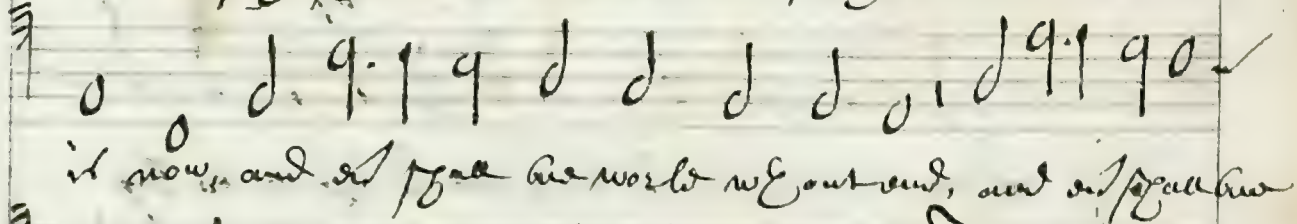 is now, and ever shall bee world wthout end, and ever shall bee